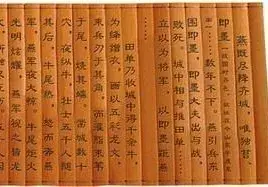 燕既尽降齐城,唯独莒、
即墨
数年不下。燕引兵东
围即墨,即墨大夫出与战,
败死。城中相与推田单,
立以为将军,以即墨距燕
……
田单乃收城中得千余牛,
为绛缯衣,画以五彩龙文,
束兵刃于其角,而灌脂束苇
于尾,烧其端。凿城数十
穴,夜纵牛,壮士五千人随
其后。牛尾热,怒而奔燕
军,燕军夜大惊。牛尾炬火
光明炫耀,燕军视之皆龙